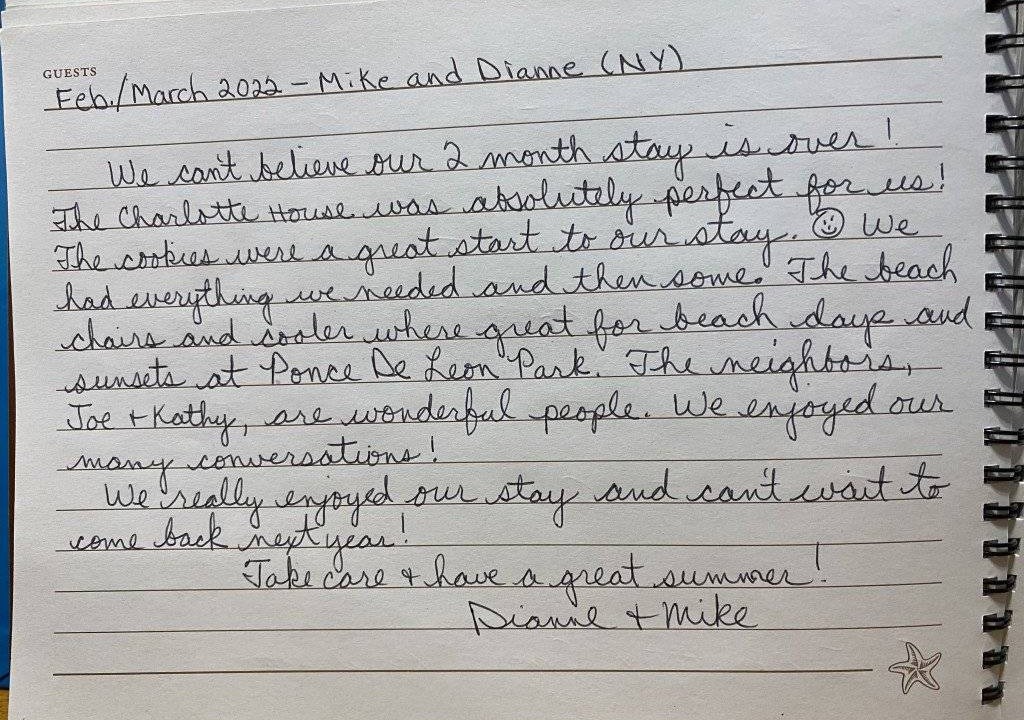 GUESTS
Feb./March 2022 - Mike and Dianne (NY)
We can't believe our 2 month stay is over!
The Charlotte House was absolutely perfect for us!
The cookies were a great start to our stay. ☺ We
had everything we needed and then some. The beach
chairs and cooler where great for beach days and
sunsets at Ponce De Leon Park. The neighbors,
Joe + Kathy, are wonderful people. We enjoyed our
many conversations!
We really enjoyed our stay and can't wait to
come back next year!
Take care + have a great summer!
Dianne + Mike